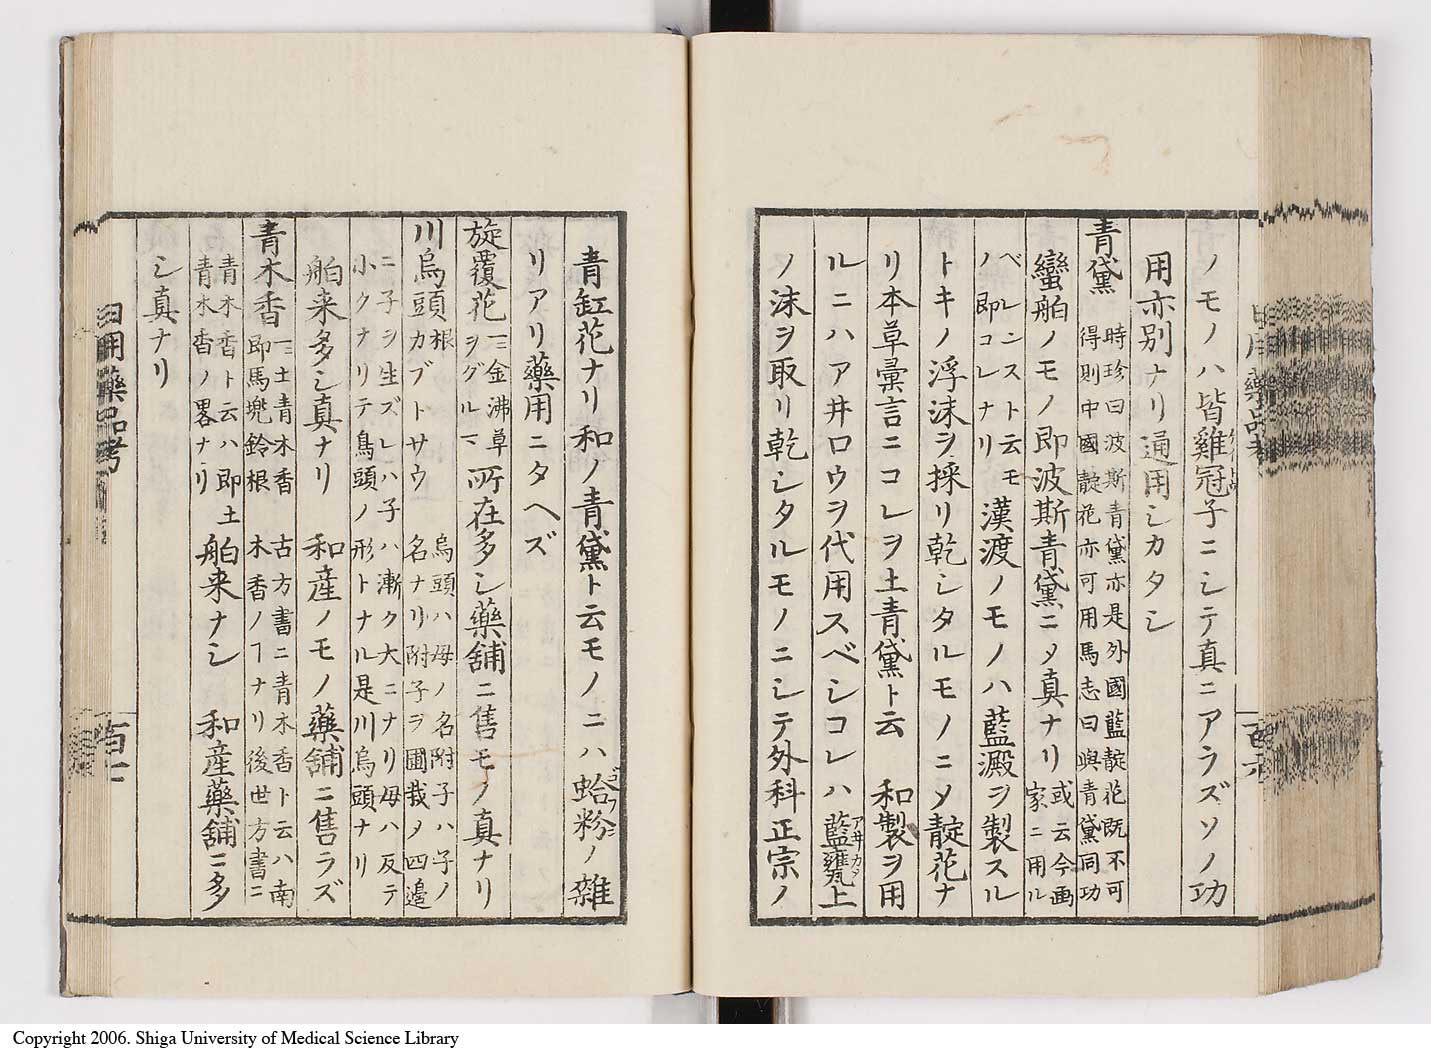 ノモノハ皆雞冠子ニシテ真ニアラズソノ功
用亦別ナリ通用シカタシ
青黛 時珍曰波斯青黛亦是外國藍靛花既不可
得則中國靛花亦可用馬志曰與青黛同功
蠻舶ノモノ即波斯青黛ニメ真ナリ 或云今画
家ニ用ル
ベレンスト云モ
ノ即コレナリ 漢渡ノモノハ藍澱ヲ製スル
トキノ浮沫ヲ採リ乾シタルモノニメ靛花ナ
リ本草彙言ニコレヲ土青黛ト云 和製ヲ用
ルニハアヰロウヲ代用スベシコレハ藍甕上
ノ沫ヲ取リ乾シタルモノニシテ外科正宗ノ
百六
青缸花ナリ和ノ青黛ト云モノニハ蛤粉ノ雜
リアリ藥用ニタヘズ
旋覆花 一ニ金沸草
ヲグルマ 所在多シ藥舖ニ售モノ真ナリ
川烏頭 根
カブトサウ 烏頭ハ母ノ名附子ハ子ノ
名ナリ附子ヲ圃栽メ四邉
ニ子ヲ生ズレハ子ハ漸ク大ニナリ母ハ反テ
小クナリテ烏頭ノ形トナル是川烏頭ナリ
舶来多シ真ナリ 和産ノモノ藥舖ニ售ラズ
青木香 一ニ土青木香
即馬兜鈴根 古方書ニ青木香ト云ハ南
木香ノヿナリ後世方書ニ
青木香ト云ハ即土
青木香ノ畧ナリ 舶来ナシ 和産藥舖ニ多
シ真ナリ
日用藥品考
百七
Copyright 2006. Shiga University of Medical Science Library